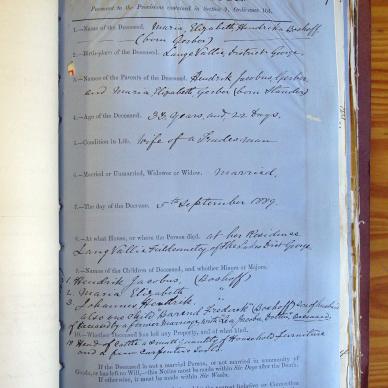 Pursuant to the Provisions contained in Section 9, Ordinance 104.
1.—Name of the Deceased. Maria Elizabeth Hendrika Boshoff
(born Gerber)
2.—Birth-place of the Deceased. Lange Vallei, District George.
3.—Names of the Parents of the Deceased. Hendrik Jacobus Gerber
and Maria Elizabeth Gerber (born Stander)
4.—Age of the Deceased. 33 Years and 22 Days.
5.—Condition in Life. Wife of a Tradesman
6.—Married or Unmarried, Widower or Widow. Married.
7.—The day of the Decease. 5th September 1889.
8.—At what House, or where the Person died. at her Residence
Lang Vallei Fieldcornetcy of the Lakes Dist George.
9.—Names of the Children of Deceased, and whether Minors or Majors.
1. Hendrik Jacobus, (Boshoff)
2. Maria Elizabeth "
3. Johannes Hendrik. "
also one Child Barend Frederik (Boshoff)
of by a former Marriage, with Jacoba
10.—Whether Deceased has left any Property, and of what kind.
Head of Cattle a small quantity of Household Furniture
and a few Carpenters Tools.
If not a Married Person, or not married in community of
Goods, or has left no Will,—this Notice must be made within Six Days after the Death.
If otherwise, it must be made within Six Weeks.
nearest Relation or Connection